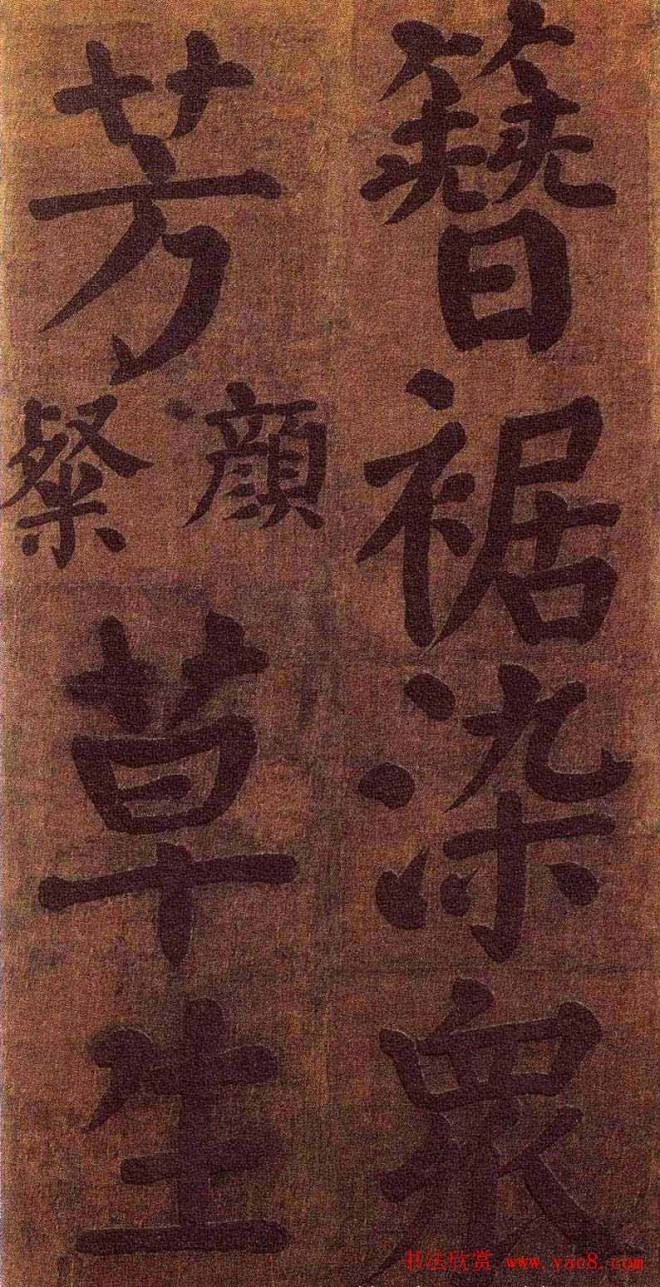 簪裾染眾
芳顔粲草生
书法欣赏 www.yac8.com